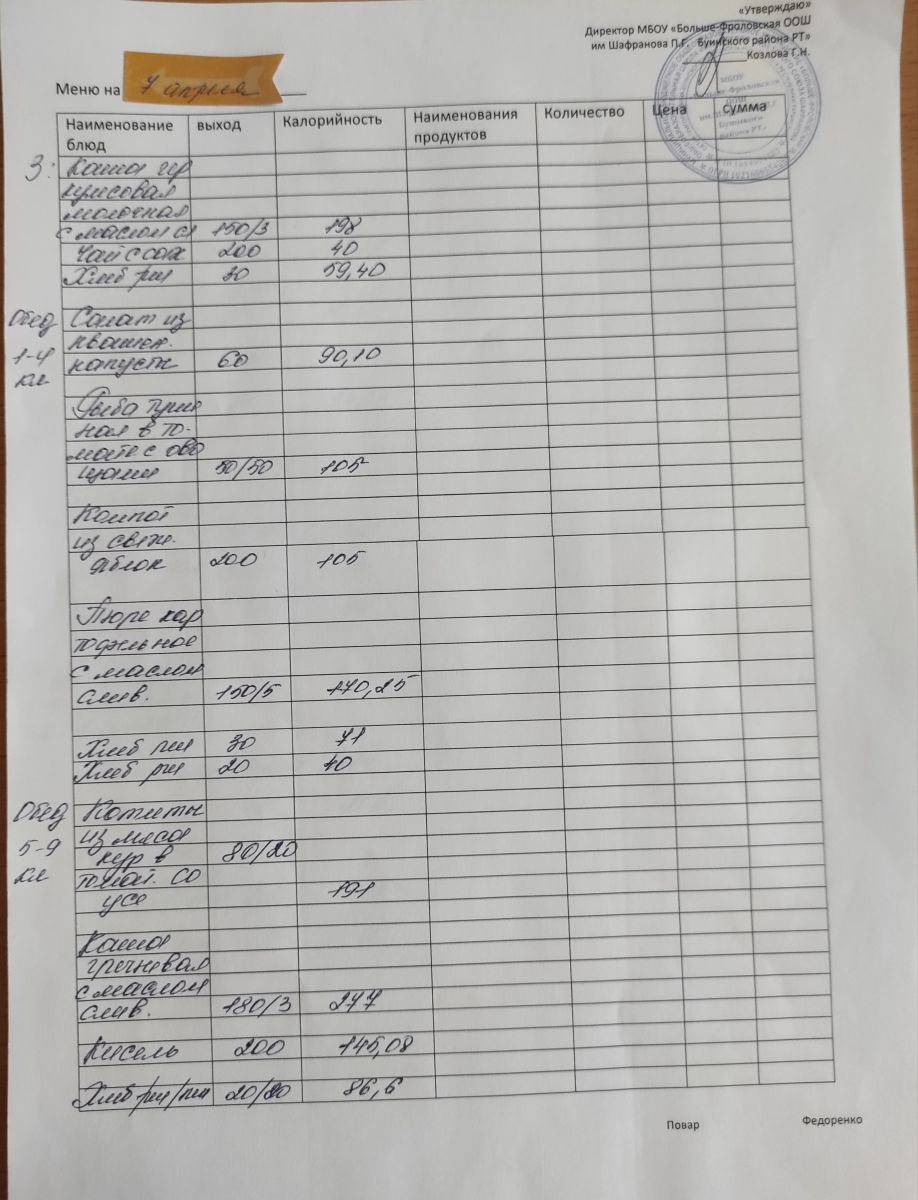 «Утверждаю»
Директор МБОУ «Больше-Фроловская ООШ
им Шафранова П.Г. Буинского района РТ»
Козлова Г.Н.
Меню на 7 апреля
Наименование блюд выход Калорийность Наименования продуктов Количество Цена сумма
З: Каша гер
кулесовая
молочная
с маслом сл 150/3 198
Чай с сах 200 40
Хлеб рж 30 59,40
Обед Салат из
квашен.
1-4 капусты 60 90,10
кл
Рыба туше
ная в то-
мате с ово
щами 50/50 105
Компот
из свеж.
яблок 200 105
Пюре кар
тофельное
с маслом
слив. 150/5 170,25
Хлеб пш 30 71
Хлеб рж 20 40
Обед Котлеты
из мяса
5-9 кур в 80/20
кл томат. со
усе 191
Каша
гречневая
с маслом
слив. 180/3 277
Кисель 200 145,08
Хлеб рж/пш 20/20 86,6
Повар Федоренко